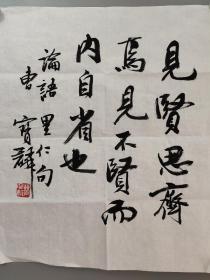 見賢思齊
焉見不賢而
内自省也
論語里仁句
曹寶麟